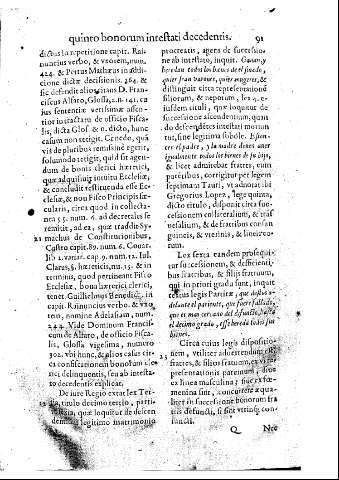 quinto bonorum intestati decedentis. 91
dictus in repetitione capit. Rai-
nuncius verbo, & vxorem, num.
424. & Petrus Mathæus in additi-
cione dictæ decisionis. 264. &
sic defendit alios citans D. Fran-
ciscus Alfaro, Glossa, 2. n. 141. cu
ius sententiæ verissimæ assen-
tior in tractatu de officio Fisca-
lis, dicta Glos. & n. dicto, hunc
casum non tetigit. Credo, quâ
vis de pluribus remissiuè egerit,
solumodo tetigit, quid sit agen-
dum de bonis clerici hæretici,
quæ adquisiuit intuitu Ecclesiæ,
& concludit restituenda esse Ec-
clesiæ, & non Fisco Principis sæ-
cularis, circa quod in collecta-
nea 55. num. 6. ad decretales se
remitit, ad ea, quæ traddit Sy-
21 machus de Constitutionibus,
Castro capit. 89. num. 6. Couar.
lib 2. variar. cap. 9. num. 12. Iul.
Clarus, §. hæreticis, nu. 15. & in
terminis, quod pertineant Fisco
Ecclesiæ, bona clerici hæretici,
tenet. Guillielmus Benedict. in
capit. Rainuncius verbo, & vxo-
rem, nomine Adelasiam, num.
244. Vide Dominum Francis-
cum de Alfaro, de officio Fisca-
lis, Glossa vigesima, numero
302. vbi hunc, & alios casus circa
confiscationem bonorum cle-
rici delinquentis, seu ab intesta-
to decedentis explicat.
De iure Regio extat lex Ter-
tia, titulo decimo tertio, parti-
quæ loquitur de descen
legitimo matrimonio
procreatis, agens de successio-
ne ab intestato, inquit.
heredan todos los bienes de el finado,
quier sean varones, quier mugeres, &
distinguit circa representatione
filiorum, & nepotum, lex 4. e-
iusdem tituli, quæ loquitur de
successione ascendentium, quan
do descendêtes intestati moriun
tur, sine legitima sobole. Disin-
cer el padre, y la madre deuen auer
igualmente todos los bienes de su hijo,
& licet admitebat fratres, cum
parentibus, corrigitur per legem
septimam Tauri, vt adnotat ibi
Gregorius Lopez, lege quinta,
dicto titulo, disponit circa suc-
cessionem collateralium, & tras
uersalium, & de fratribus consan
guineis, & vterinis, & linea eo-
rum.
Lex sexta eandem prosequi-
tur successionem, & defficienti-
bus fratribus, & filijs fratruum,
qui in priori gradu sunt, inquit
textus legis Partitæ, que desde en-
delante el pariente, que fuere fallado,
que es mas cercano del difunto, hasta
el decimo grado, esse hereda todos sus
bienes.
Circa cuius legis dispositio-
nem, vtiliter aduertendum est
23 fratres, & filios fratrum, ex re-
presentationis parentum, diuo
ex linea masculina; siue ex fœ-
menina sint, concurrere æqua-
liter in successione bonorum fra
tris defuncti, si sint vtrinq; con-
iuncti,
Q Nec